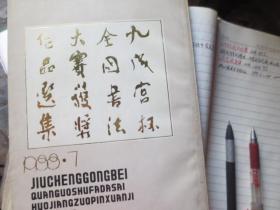 九成宫杯
全国书法
大赛获奖
作品选集
1988·7
JIUCHENGGONGBEI
QUANGUOSHUFADASAI
HUOJIANGZUOPINXUANJI